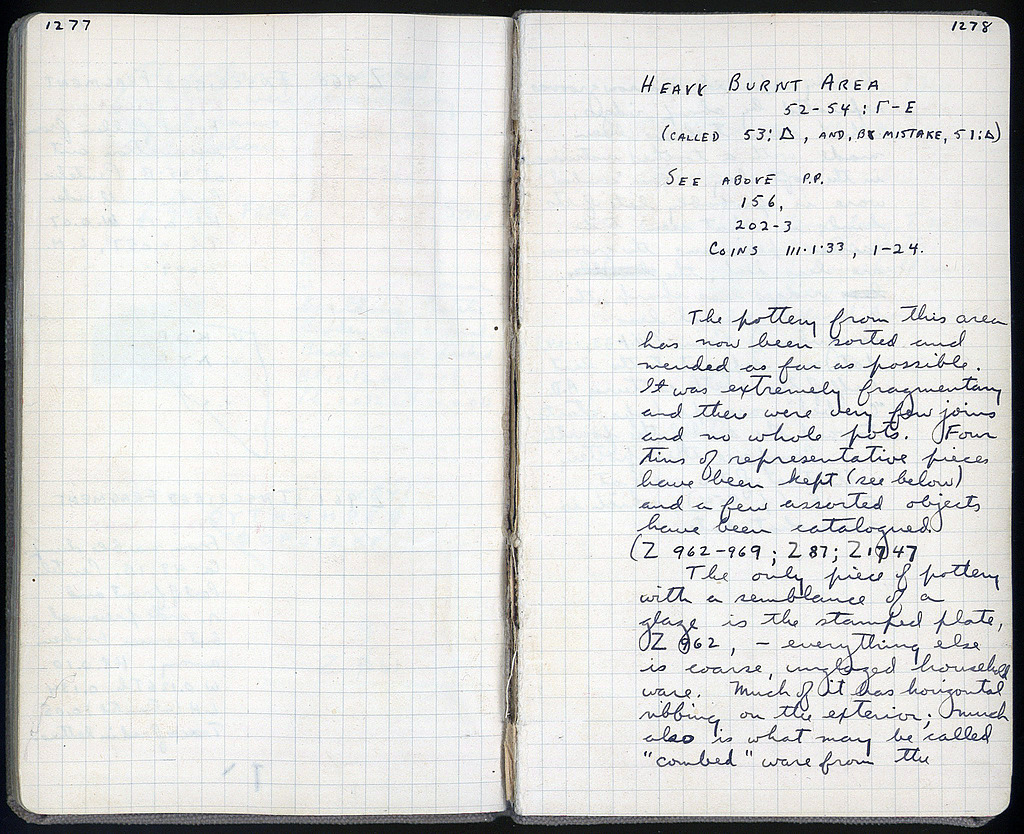 1277
1278
HEAVY BURNT AREA
52-54 : Γ-Ε
(CALLED 53:Δ, AND, BY MISTAKE, 51:Δ)
SEE ABOVE P.P.
156,
202-3
COINS III·1·33, 1-24.
The pottery from this area
has now been sorted and
mended as far as possible.
It was extremely fragmentary
and there were very few joins
and no whole pots. Four
tins of representative pieces
have been kept (see below)
and a few assorted objects
have been catalogued
(Z 962-969; Z 87; Z 1747
The only piece of pottery
with a semblance of a
glaze is the stamped plate,
Z 962, - everything else
is coarse, unglazed household
ware. Much of it has horizontal
ribbing on the exterior; much
also is what may be called
"combed" ware from the